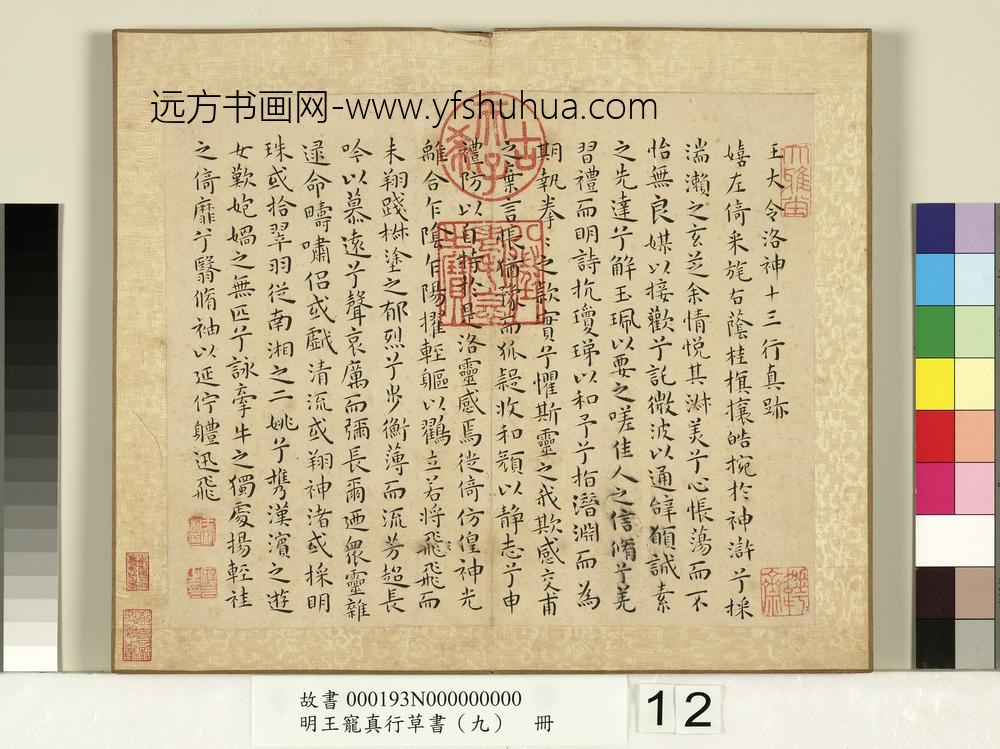 远方书画网-www.yfshuhua.com
王大令洛神十三行真跡
嬉左倚采旄右蔭桂旗攘皓捥於神滸兮採
湍瀨之玄芝余情悅其淑美兮心悵蕩而不
怡無良媒以接歡兮託微波以通辭願誠素
之先達兮解玉珮以要之嗟佳人之信脩兮羌
習禮而明詩抗瓊珶以和予兮指潛淵而為
期執拳〻之款實兮懼斯靈之我欺感交甫
之棄言悵猶豫而狐疑收和顏以静志兮申
禮防以自持於是洛靈感焉徙倚仿偟神光
離合乍陰乍陽擢輕軀以鶴立若將飛飛而
未翔踐椒塗之郁烈兮步衡薄而流芳超長
吟以慕遠兮聲哀厲而彌長爾迺眾靈雜
遝命疇嘯侶或戲清流或翔神渚或採明
珠或拾翠羽從南湘之二姚兮攜漢濱之遊
女歎匏媧之無匹兮詠牽牛之獨處揚輕袿
之倚靡兮翳脩袖以延佇軆迅飛
故書 000193N000000000
明王寵真行草書（九） 冊
12